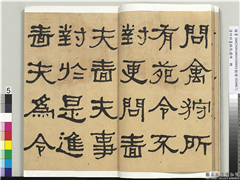 問禽狩所
有苑令不
對更問嗇
夫嗇夫事
對於是進
嗇夫為令
5